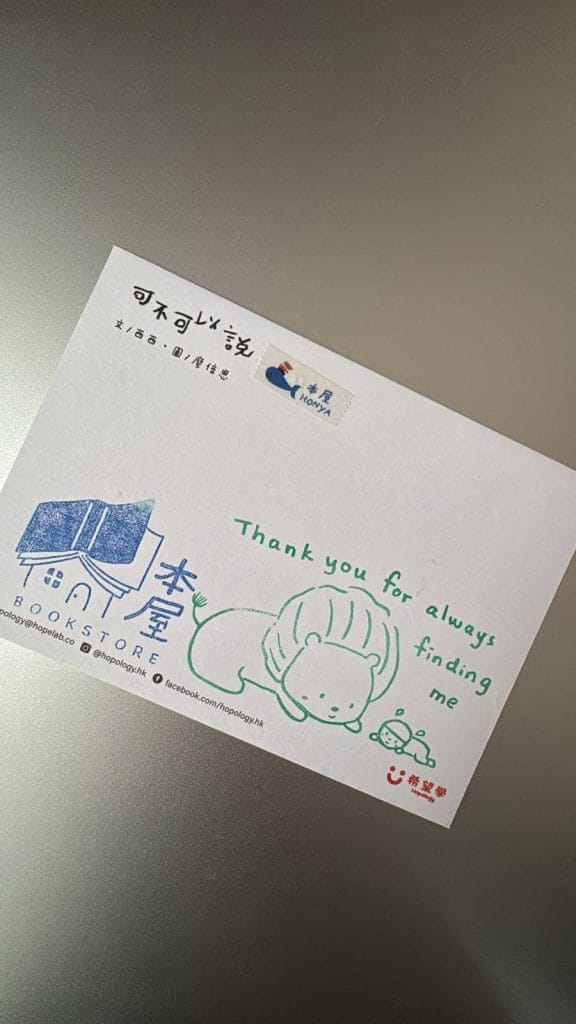 可不可以說
文/西西・圖/廖倍思
本屋
HONYA
Thank you for always
finding
me
本屋
BOOKSTORE
pology@hopelab.co @hopology.hk facebook.com/hopology.hk
希望學
Hopology